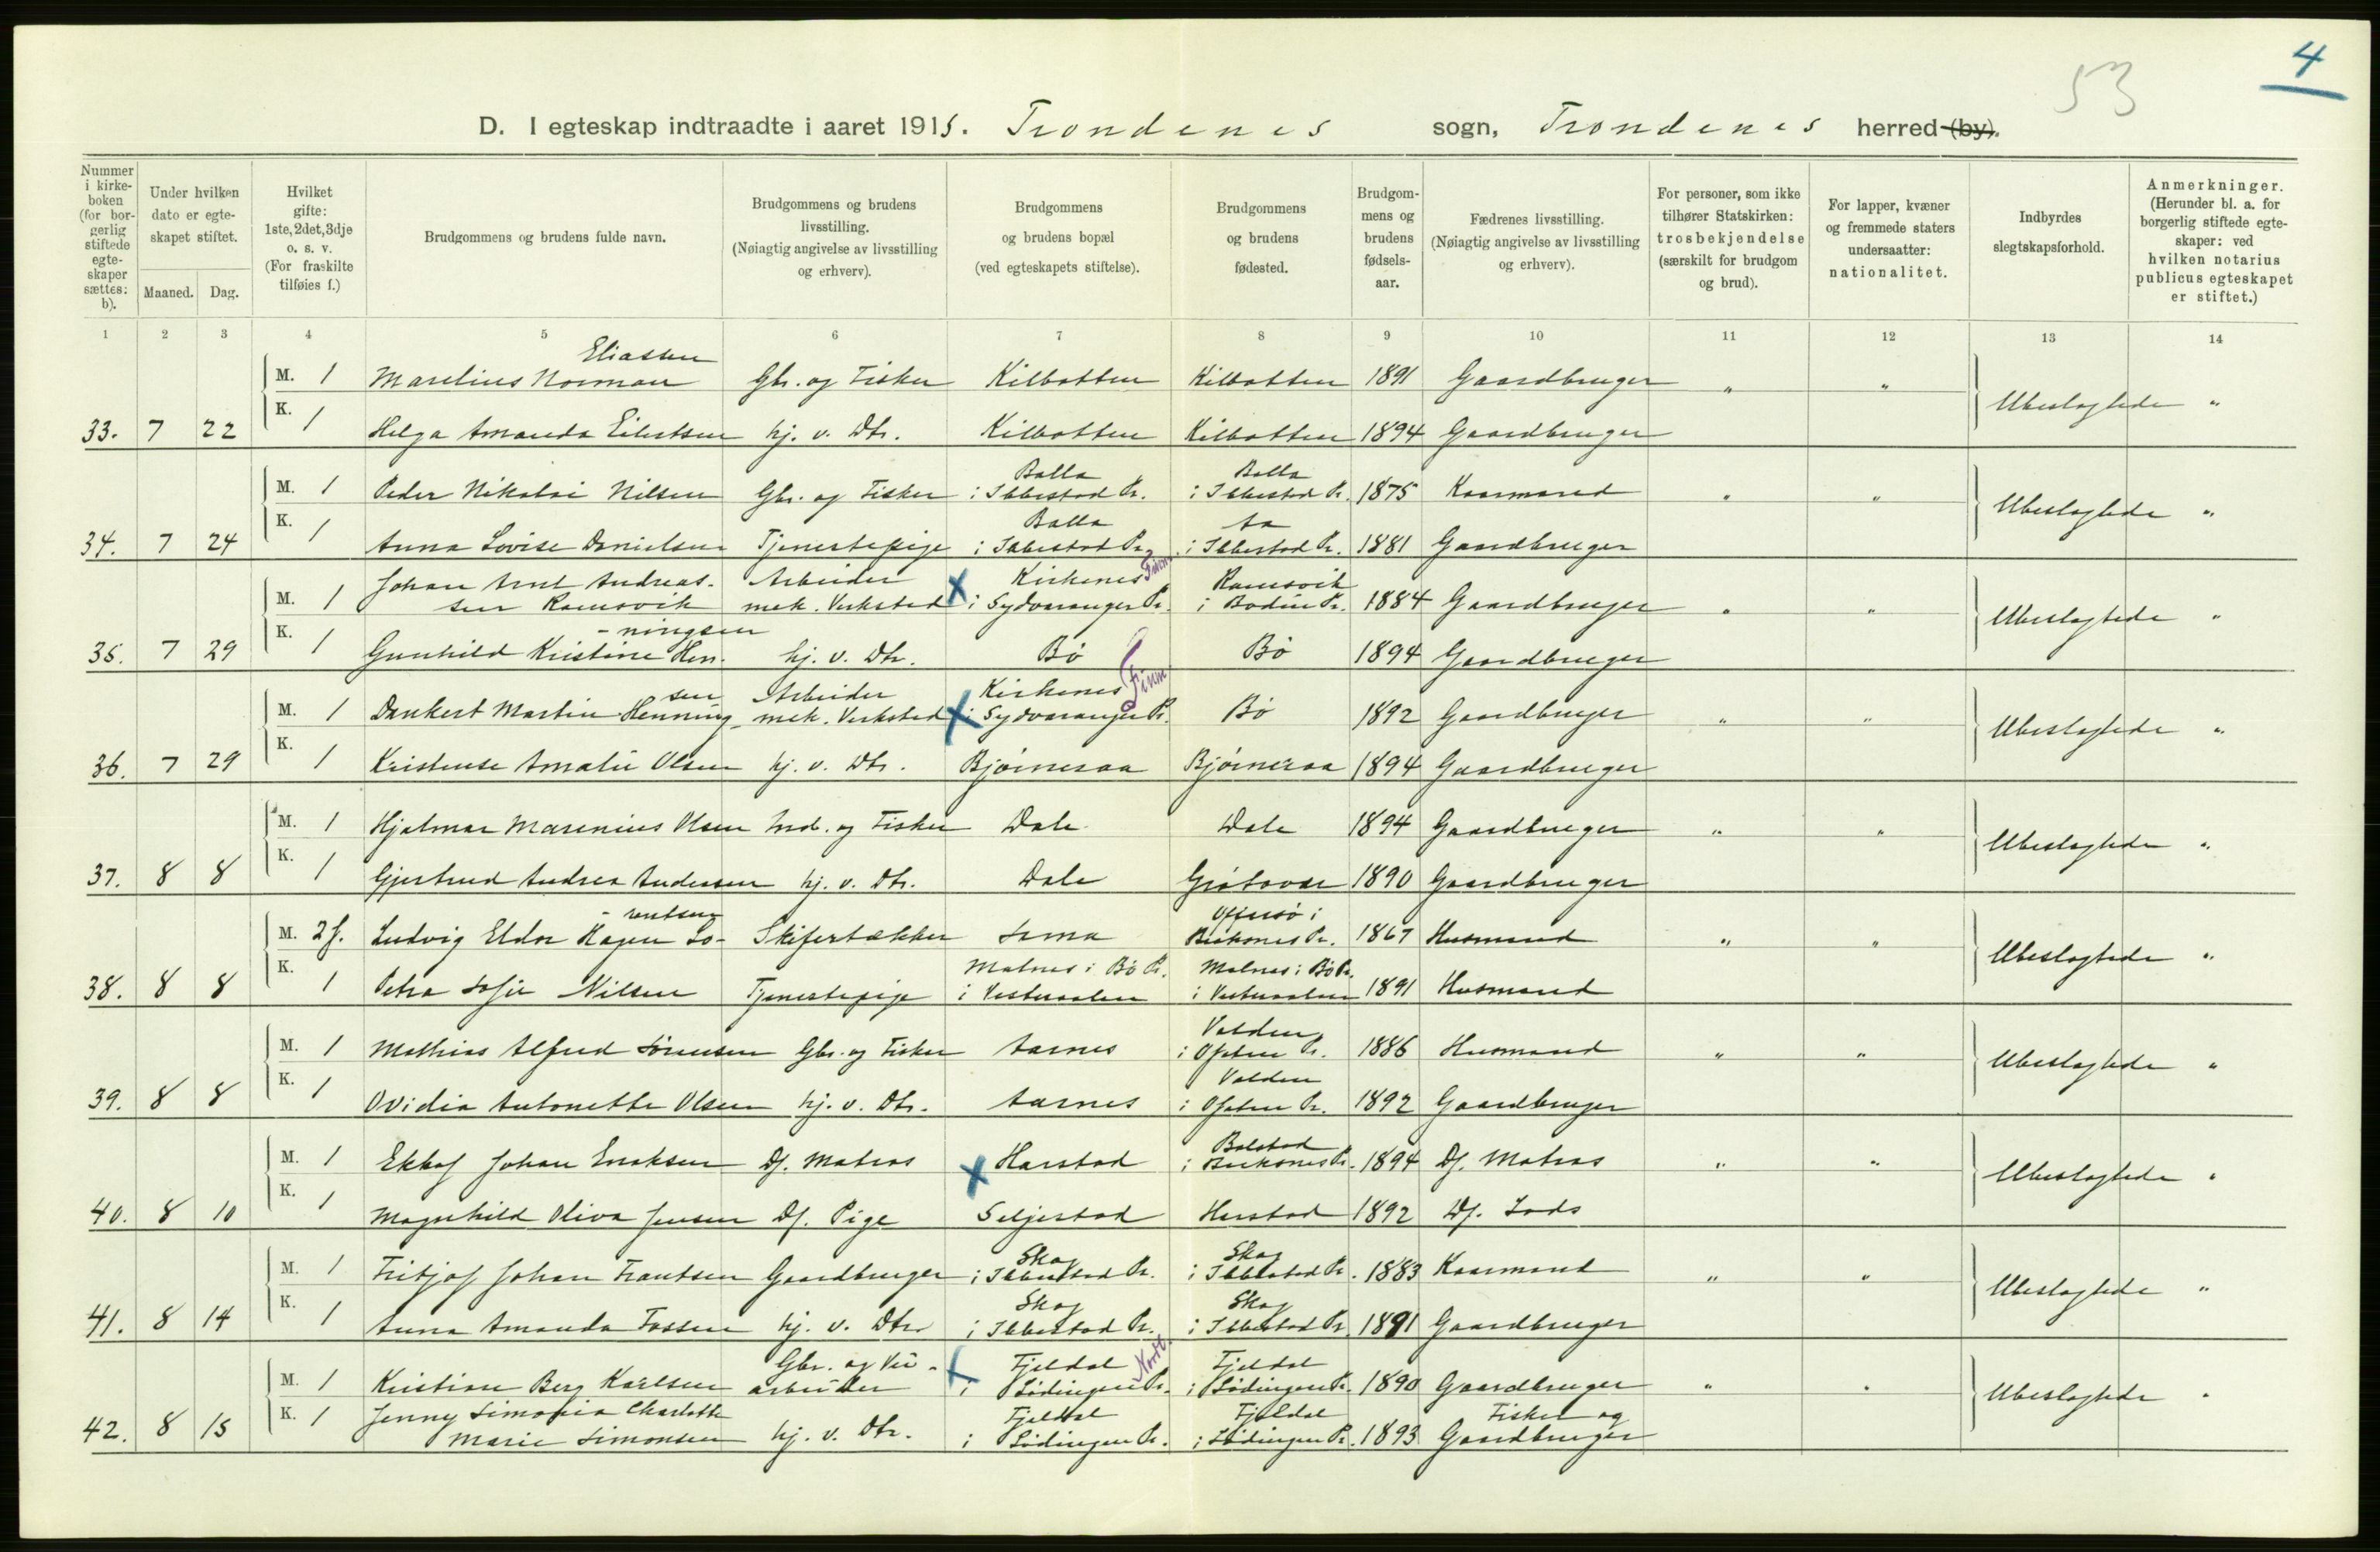 4
53
D. I egteskap indtraadte i aaret 1915. Trondenes sogn, Trondenes herred (by).
Nummer i kirke-boken (for bor-gerlig stiftede egte-skaper sættes: b).
Under hvilken dato er egte-skapet stiftet.
Maaned. Dag.
Hvilket gifte: 1ste, 2det, 3dje o. s. v. (For fraskilte tilføies f.)
Brudgommens og brudens fulde navn.
Brudgommens og brudens livsstilling. (Nøiagtig angivelse av livsstilling og erhverv).
Brudgommens og brudens bopæl (ved egteskapets stiftelse).
Brudgommens og brudens fødested.
Brudgom-mens og brudens fødsels-aar.
Fædrenes livsstilling. (Nøiagtig angivelse av livsstilling og erhverv).
For personer, som ikke tilhører Statskirken: trosbekjendelse (særskilt for brudgom og brud).
For lapper, kvæner og fremmede staters undersaatter: nationalitet.
Indbyrdes slegtskapsforhold.
Anmerkninger. (Herunder bl. a. for borgerlig stiftede egte-skaper: ved hvilken notarius publicus egteskapet er stiftet.)
1 2 3 4 5 6 7 8 9 10 11 12 13 14
M. 1 Marelius Norman Eliassen Gbr. og Fisker Kilbotten Kilbotten 1891 Gaardbruger " "
33. 7 22 K. 1 Helga Amanda Eilertsen hj. v. Dtr. Kilbotten Kilbotten 1894 Gaardbruger Ubeslægtede "
M. 1 Peder Nikolai Nilsen Gbr. og Fisker Balla i Ibbestad Pr. Balla i Ibbestad Pr. 1875 Kaarmand " "
34. 7 24 K. 1 Anna Lovise Danielsen Tjenestepige Balla i Ibbestad Pr. Aa i Ibbestad Pr. 1881 Gaardbruger Ubeslægtede "
M. 1 Johan Arnt Andreas-sen Ramsvik Arbeider mek. Verksted Kirkenes i Sydvaranger Pr. Finm. Ramsvik i Bodin Pr. 1884 Gaardbruger " "
35. 7 29 K. 1 Gunhild Kristine Hen-ningsen hj. v. Dtr. Bø Bø 1894 Gaardbruger Ubeslægtede "
M. 1 Dankert Martin Henningsen Arbeider mek. Verksted Kirkenes i Sydvaranger Pr. Finm Bø 1892 Gaardbruger " "
36. 7 29 K. 1 Kristense Amalie Olsen hj. v. Dtr. Bjørneraa Bjørneraa 1894 Gaardbruger Ubeslægtede "
M. 1 Hjalmar Marenius Olsen Ind. og Fisker Dale Dale 1894 Gaardbruger " "
37. 8 8 K. 1 Gjertrud Andrea Andersen hj. v. Dtr. Dale Grøtavær 1890 Gaardbruger Ubeslægtede "
M. 2 f. Ludvig Eldor Hagen Lo-rentsen Skifertækker Sama Offersø i Buksnes Pr. 1867 Husmand " "
38. 8 8 K. 1 Petra Sofie Nilsen Tjenestepige Malnes i Bø Pr. i Vesteraalen Malnes i Bø Pr. i Vesteraalen 1891 Husmand Ubeslægtede "
M. 1 Mathias Alfred Sørensen Gbr. og Fisker Aarnes Valden i Ofoten Pr. 1886 Husmand " "
39. 8 8 K. 1 Ovidia Antonette Olsen hj. v. Dtr. Aarnes Valden i Ofoten Pr. 1892 Gaardbruger Ubeslægtede "
M. 1 Ekhof Johan Enoksen Df. Matros Harstad Balstad i Buksnes Pr. 1894 Df. Matros " "
40. 8 10 K. 1 Magnhild Oliva Jensen Df. Pige Seljestad Harstad 1892 Df. Lods Ubeslægtede "
M. 1 Fritjof Johan Frantsen Gaardbruger Skog i Ibbestad Pr. Skog i Ibbestad Pr. 1883 Kaarmand " "
41. 8 14 K. 1 Anna Amanda Fossen hj. v. Dtr. Skog i Ibbestad Pr. Skog i Ibbestad Pr. 1891 Gaardbruger Ubeslægtede "
M. 1 Kristian Berg Karlsen Gbr. og Vei-arbeider Fjeldal i Lødingen Pr. Nordl. Fjeldal i Lødingen Pr. 1890 Gaardbruger " "
42. 8 15 K. 1 Jenny Simonia Charlotte Marie Simonsen hj. v. Dtr. Fjeldal i Lødingen Pr. Fjeldal i Lødingen Pr. 1893 Fisker og Gaardbruger Ubeslægtede "